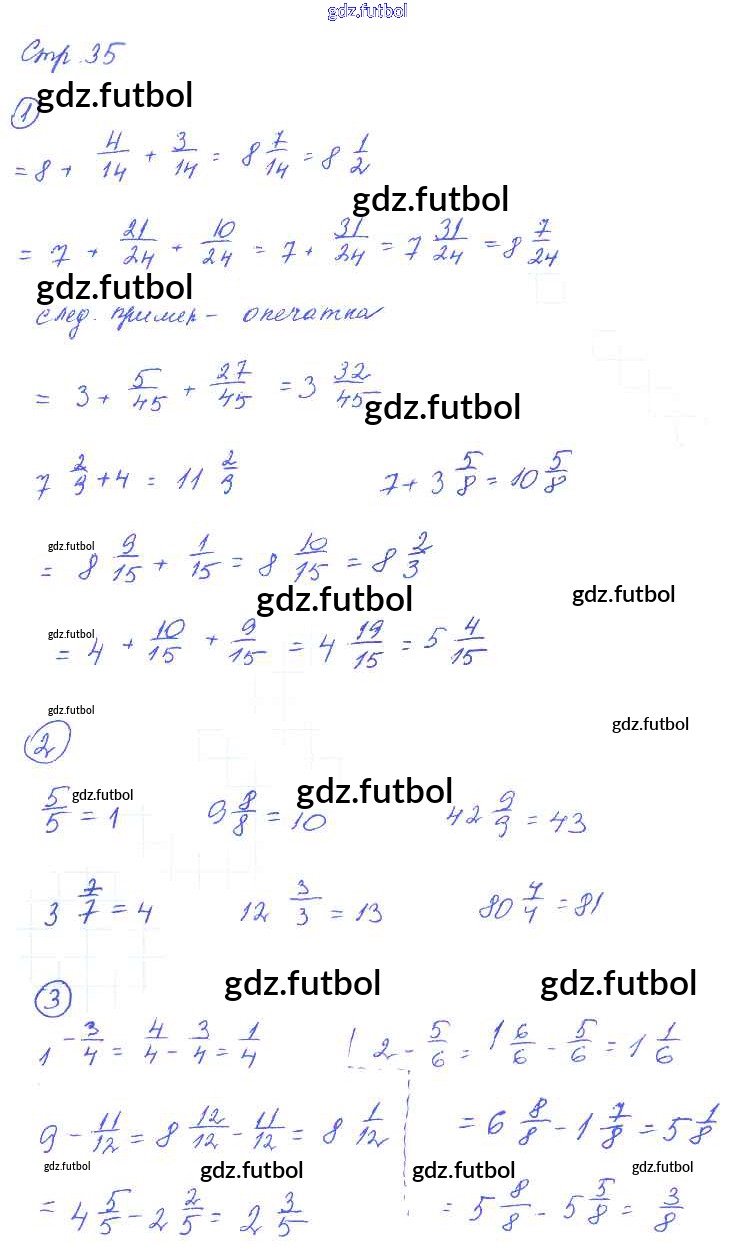 gdz.futbol
Стр. 35
gdz.futbol
1
= 8 + 4/14 + 3/14 = 8 7/14 = 8 1/2
gdz.futbol
= 7 + 21/24 + 10/24 = 7 + 31/24 = 7 31/24 = 8 7/24
gdz.futbol
след. пример - опечатка
= 3 + 5/45 + 27/45 = 3 32/45
gdz.futbol
7 2/9 + 4 = 11 2/9 7 + 3 5/8 = 10 5/8
gdz.futbol
= 8 9/15 + 1/15 = 8 10/15 = 8 2/3
gdz.futbol gdz.futbol
gdz.futbol
= 4 + 10/15 + 9/15 = 4 19/15 = 5 4/15
gdz.futbol
2 gdz.futbol
gdz.futbol gdz.futbol
5/5 = 1 9 8/8 = 10 42 9/9 = 43
3 7/7 = 4 12 3/3 = 13 80 4/4 = 81
gdz.futbol gdz.futbol
3
1 - 3/4 = 4/4 - 3/4 = 1/4 2 - 5/6 = 1 6/6 - 5/6 = 1 1/6
9 - 11/12 = 8 12/12 - 11/12 = 8 1/12 = 6 8/8 - 1 7/8 = 5 1/8
gdz.futbol gdz.futbol gdz.futbol gdz.futbol
= 4 5/5 - 2 2/5 = 2 3/5 = 5 8/8 - 5 5/8 = 3/8